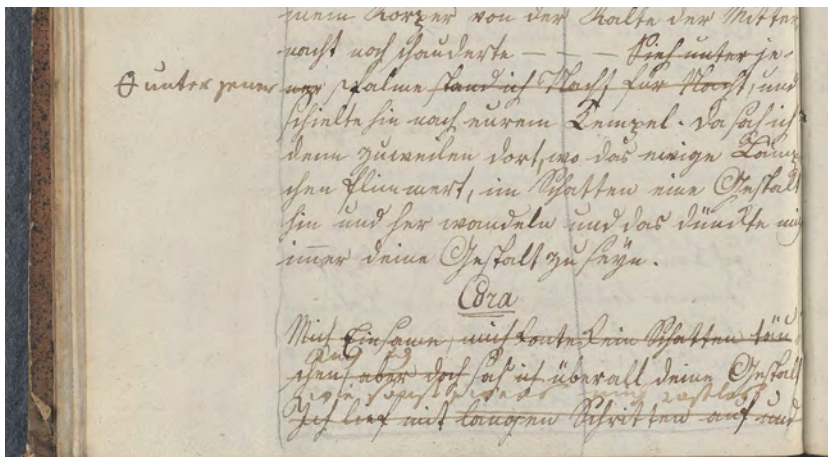 meinem Körper von der Kälte der Mitter
nacht noch schauderte – – – Sieh unter je-
unter jener
ner Palme stand ich Nacht für Nacht, und
schielte hin nach eurem Tempel. Da sah ich
denn zuweilen dort, wo das ewige Lämp
chen flimmert, im Schatten eine Gestalt
hin und her wandeln und das dünkte mich
immer deine Gestalt zu seyn.
Cora
Mich Einsame, mich konte kein Schatten täu
schen, aber doch sah ich überall deine Gestalt
rastlos
Ich lief mit langen Schritten auf und